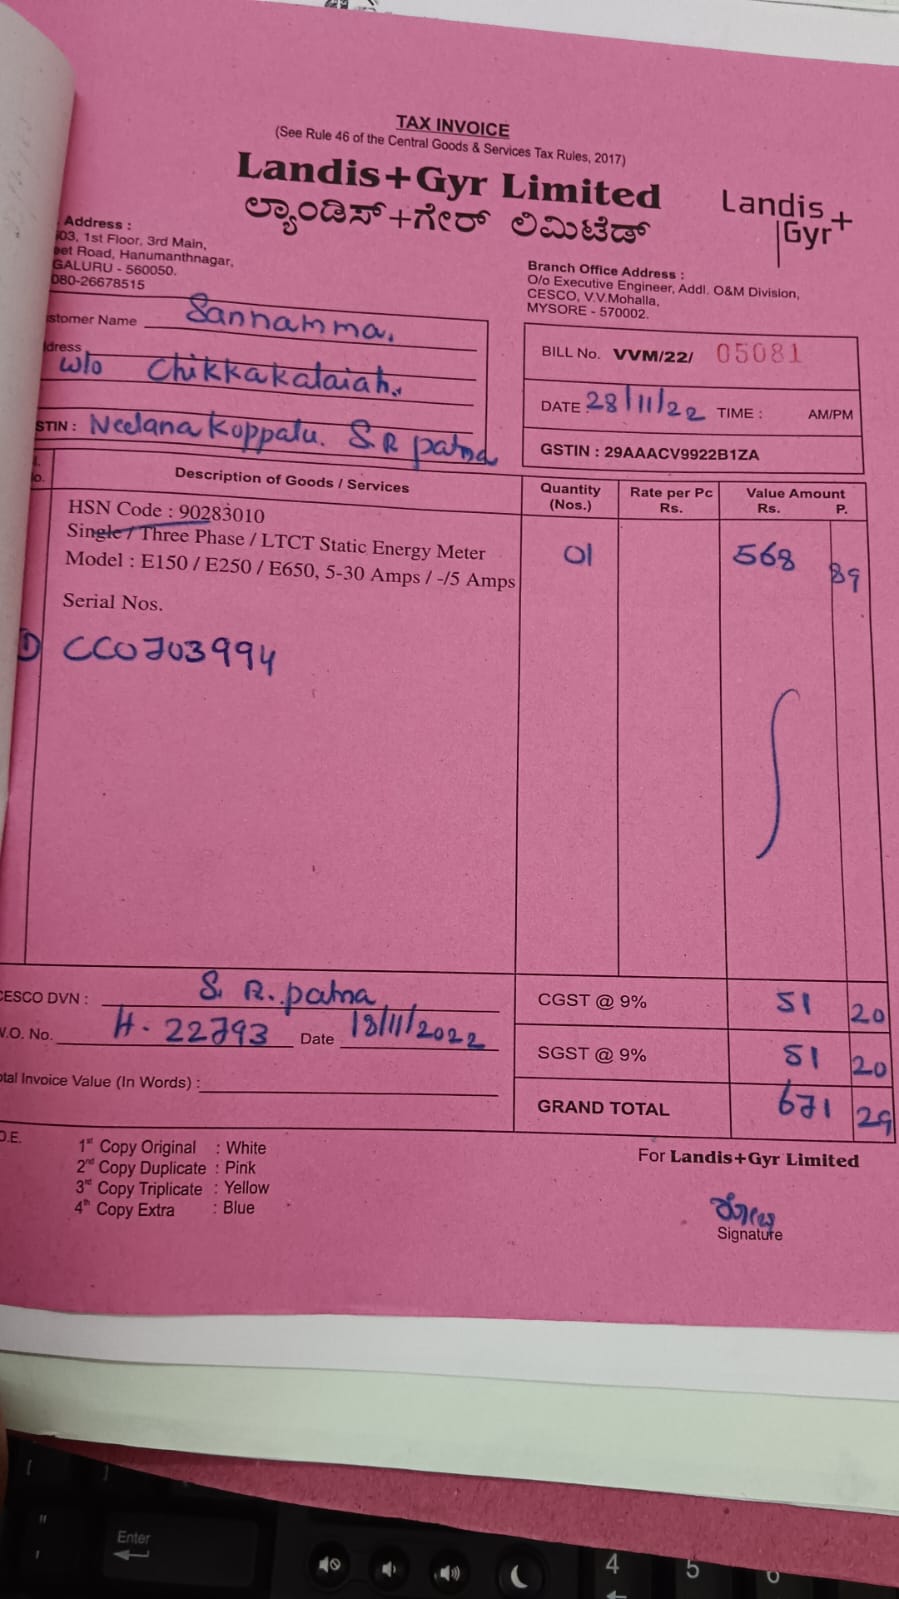 TAX INVOICE
(See Rule 46 of the Central Goods & Services Tax Rules, 2017)
Landis+Gyr Limited
ಲ್ಯಾಂಡಿಸ್+ಗೇರ್ ಲಿಮಿಟೆಡ್
Landis
Gyr+
Address :
03, 1st Floor, 3rd Main,
eet Road, Hanumanthnagar,
GALURU - 560050.
080-26678515
Branch Office Address :
O/o Executive Engineer, Addl. O&M Division,
CESCO, V.V.Mohalla,
MYSORE - 570002.
stomer Name Sannamma.
dress w/o Chikkakataiah.
STIN : Neelanakoppalu. S.R patna
BILL No. VVM/22/ 05081
DATE : 28/11/22 TIME : AM/PM
GSTIN : 29AAACV9922B1ZA
o. Description of Goods / Services Quantity (Nos.) Rate per Pc Rs. Value Amount Rs. P.
HSN Code : 90283010
Single / Three Phase / LTCT Static Energy Meter 01 568 89
Model : E150 / E250 / E650, 5-30 Amps / -/5 Amps
Serial Nos.
1) CC0703994
CESCO DVN : S. R. patna
CGST @ 9% 51 20
W.O. No. H-22793 Date 18/11/2022
SGST @ 9% 51 20
otal Invoice Value (In Words) :
GRAND TOTAL 671 29
O.E.
1st Copy Original : White
2nd Copy Duplicate : Pink
3rd Copy Triplicate : Yellow
4th Copy Extra : Blue
For Landis+Gyr Limited
Signature
Enter
4
5
6